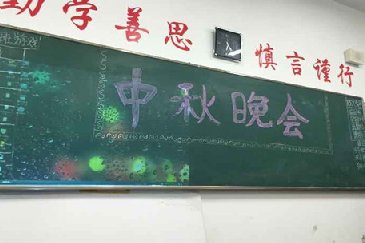 勤学善思
慎言谨行
中秋晚会